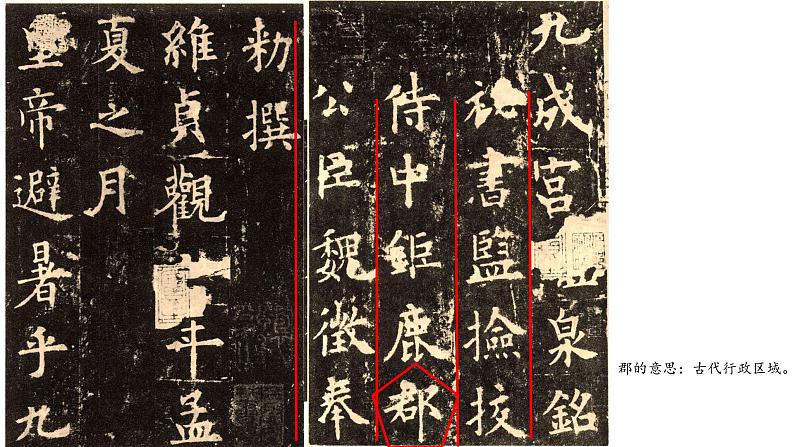 九成宮泉銘
祕書監撿挍
侍中鉅鹿郡
公臣魏徵奉
勑撰
維貞觀年孟
夏之月
皇帝避暑乎九
郡的意思：古代行政区域。